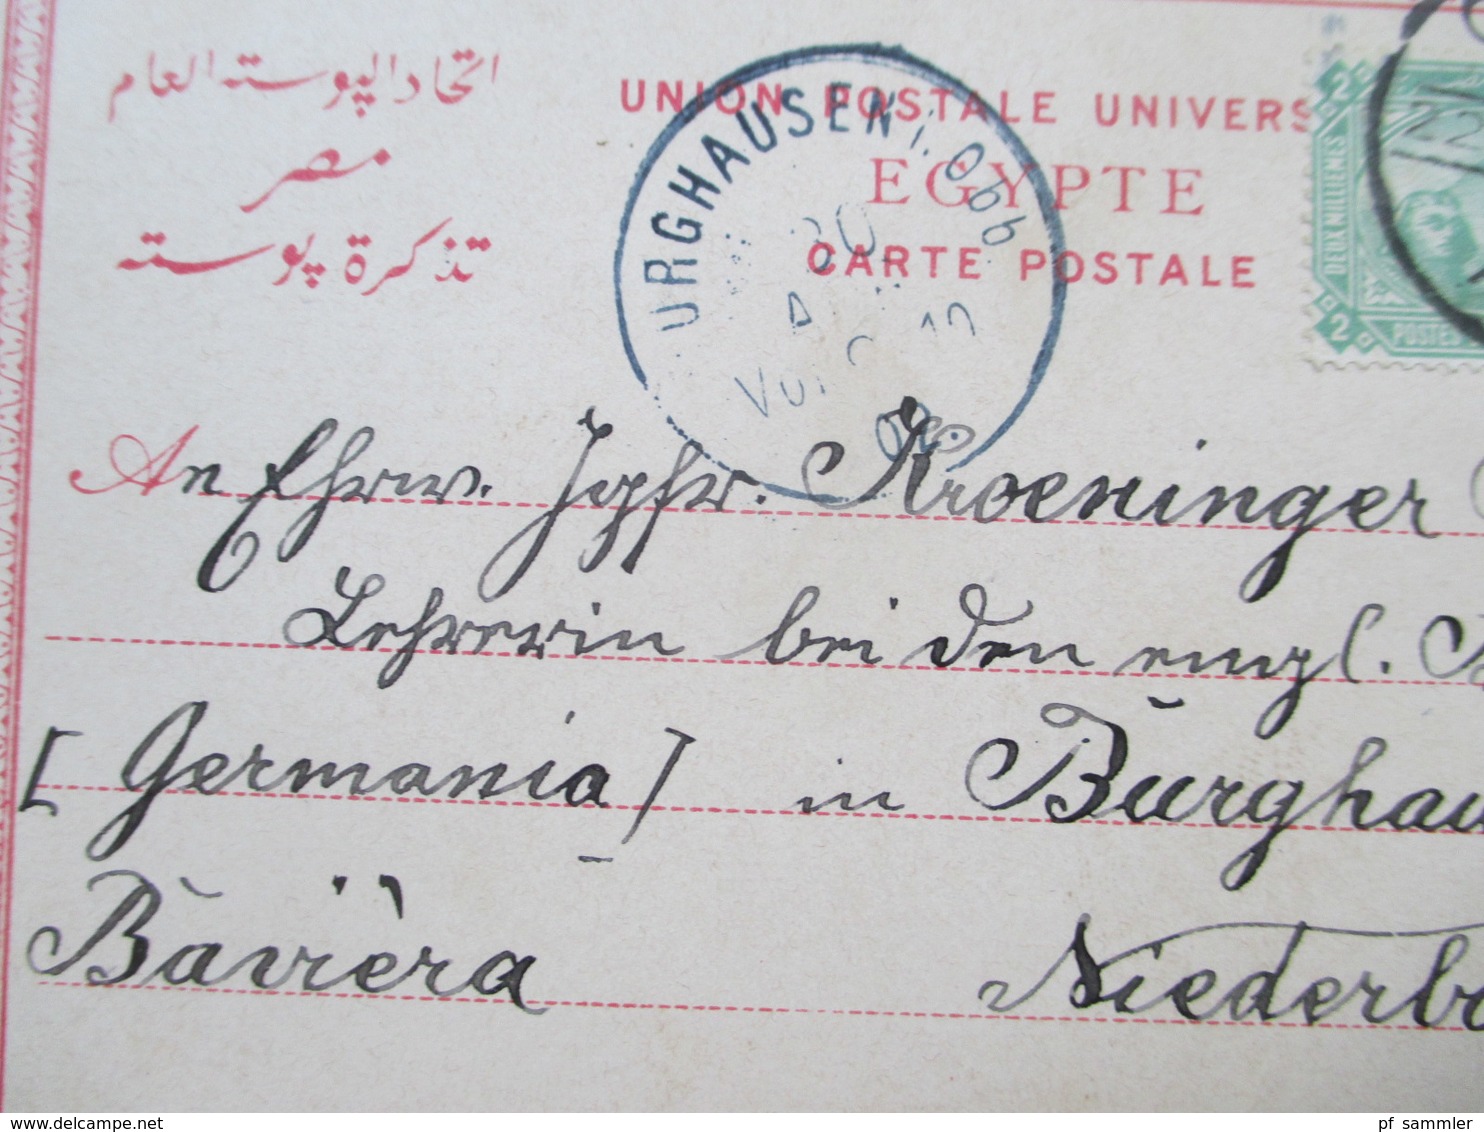 اتحاد الپوسته العام
مصر
تذكرة پوسته
UNION POSTALE UNIVERS
EGYPTE
CARTE POSTALE
URGHAUSEN i. Obb
30
VOR 9-10
02
2
DEUX MILLIEMES
2
POSTES
An Ehrw. Jgfr. Kroeninger
Lehrerin bei den engl.
[Germania] in Burghau
Bavièra Niederb
pf_sammler
www.delcampe.net